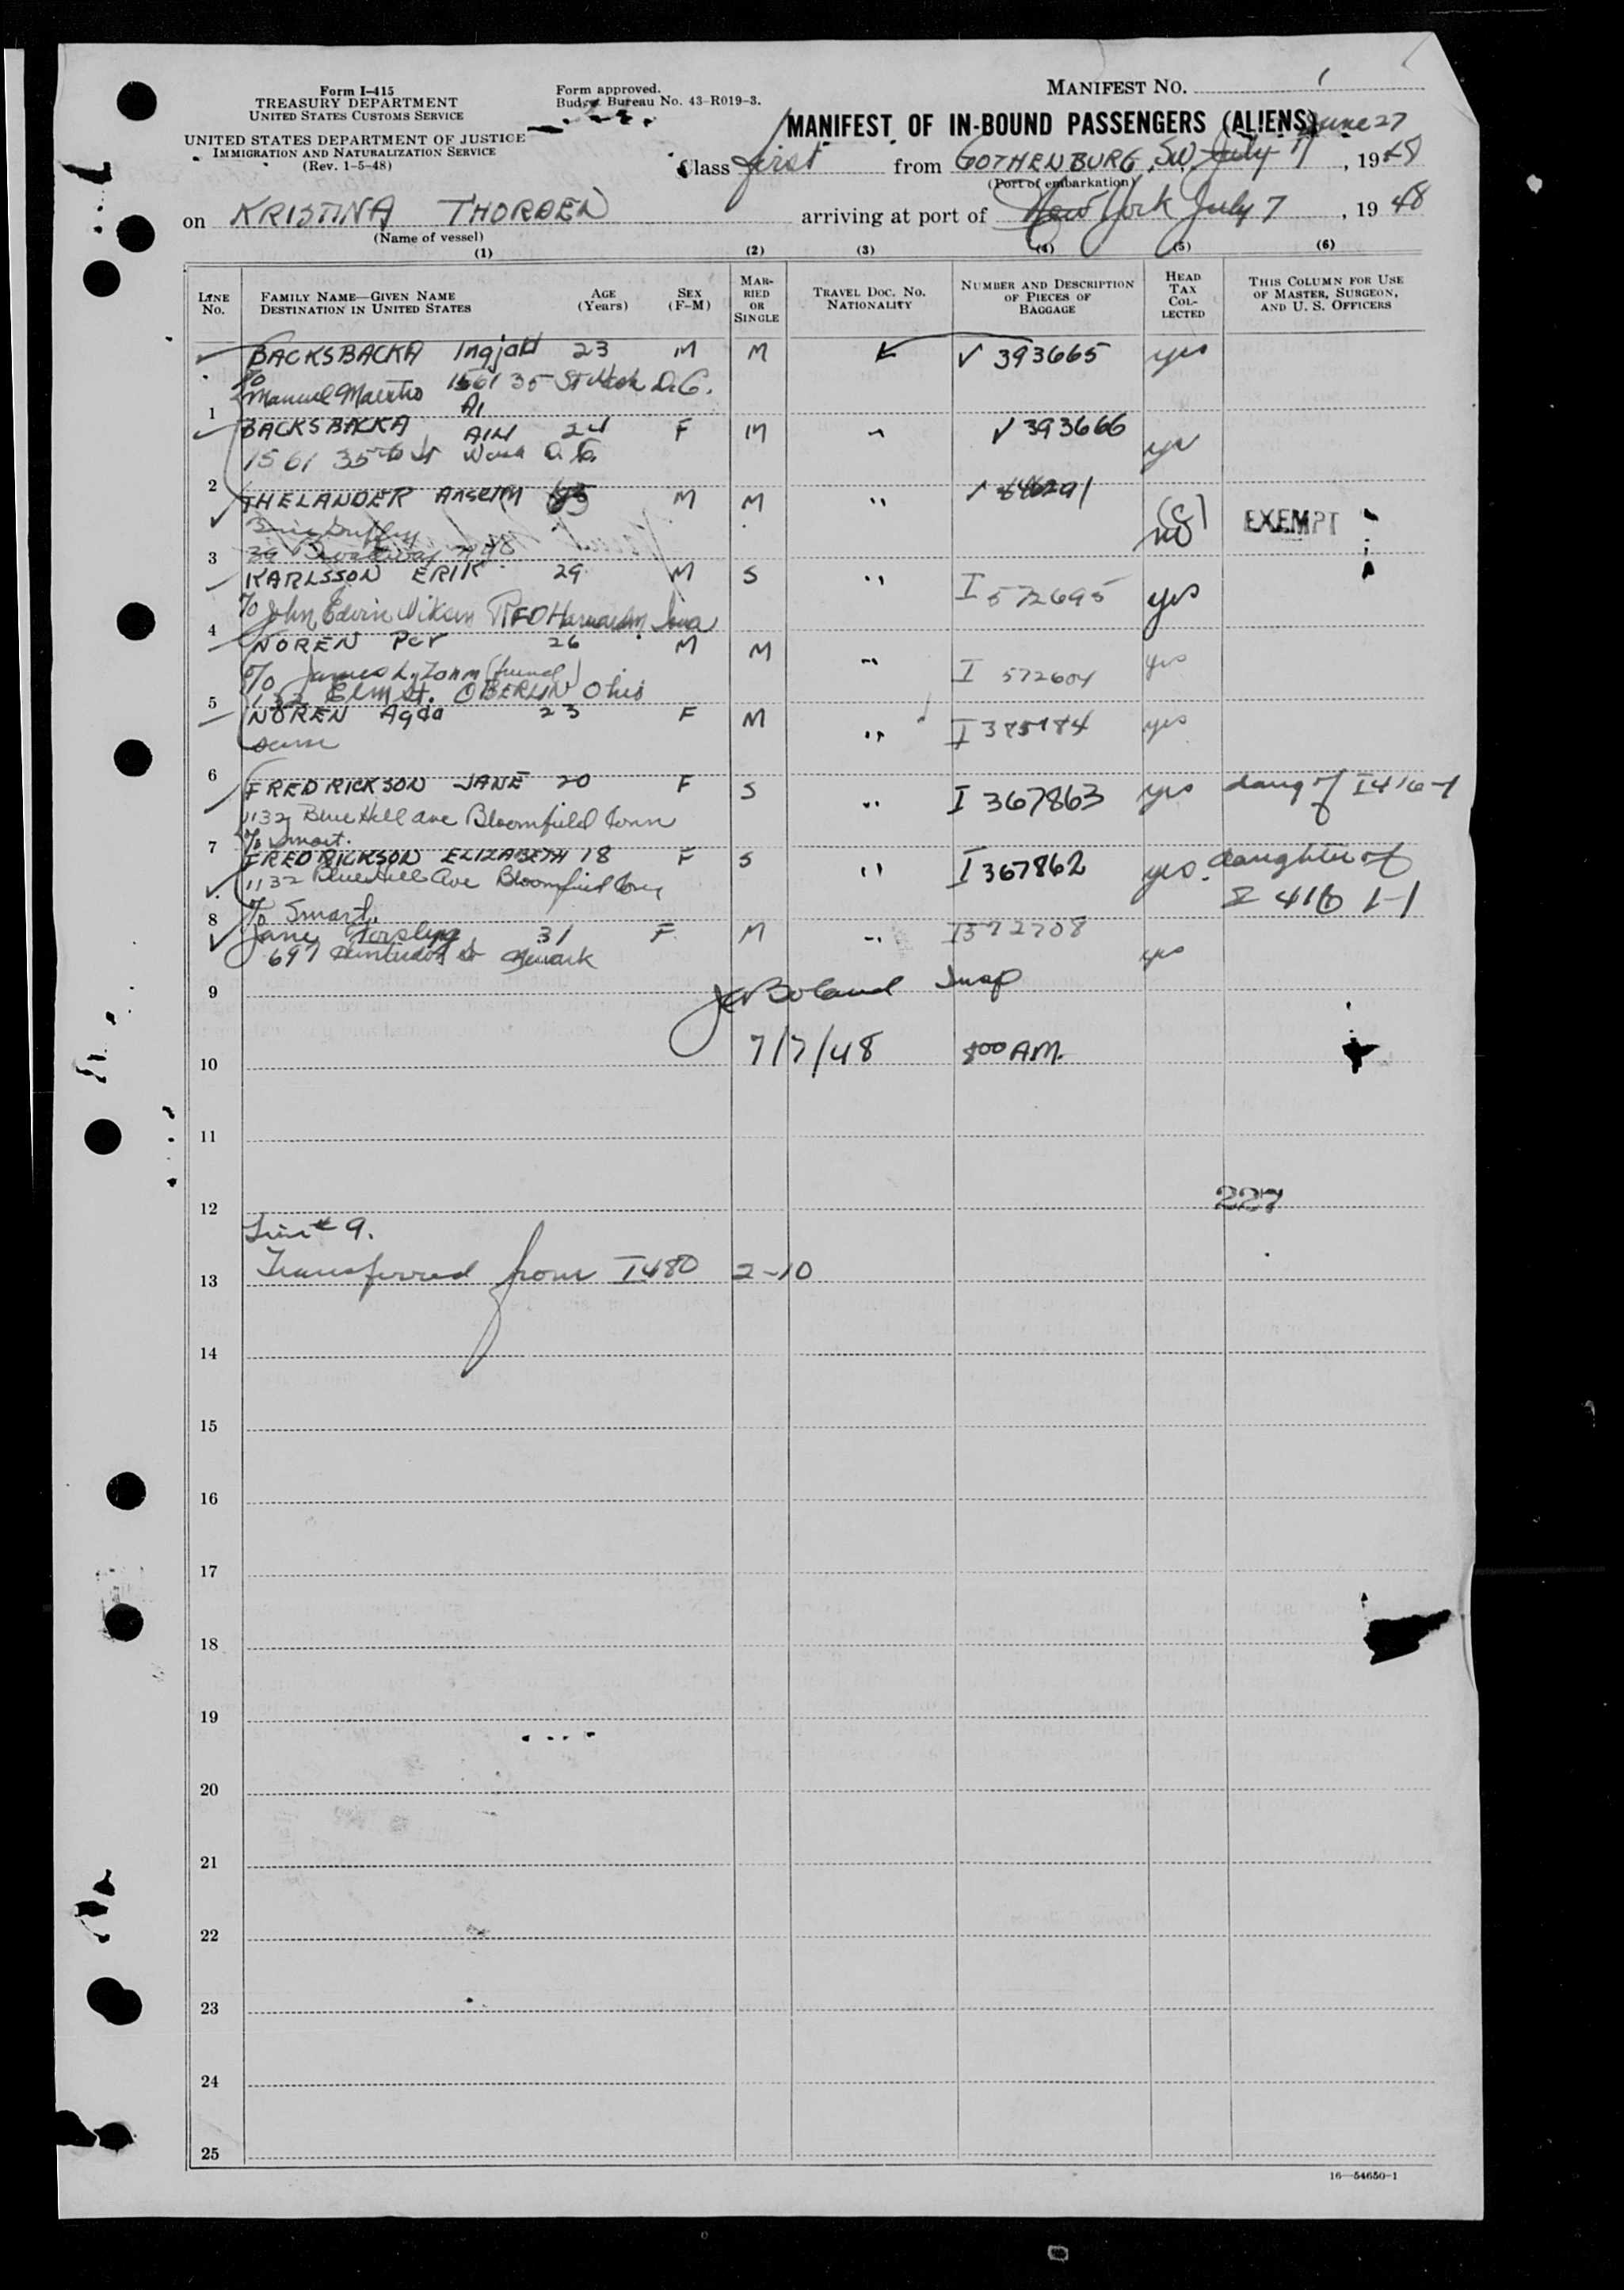 Form I-415
TREASURY DEPARTMENT
UNITED STATES CUSTOMS SERVICE
UNITED STATES DEPARTMENT OF JUSTICE
IMMIGRATION AND NATURALIZATION SERVICE
(Rev. 1-5-48)
Form approved.
Budget Bureau No. 43-R019-3.
MANIFEST NO. 1
MANIFEST OF IN-BOUND PASSENGERS (ALIENS)
June 27
Class first from GOTHENBURG, SW. July 7, 1948
(Port of embarkation)
on KRISTINA THORDEN arriving at port of New York July 7, 1948
(Name of vessel)
(1) (2) (3) (4) (5) (6)
LINE NO.
FAMILY NAME—GIVEN NAME
DESTINATION IN UNITED STATES
AGE (Years)
SEX (F-M)
MARRIED OR SINGLE
TRAVEL DOC. NO. NATIONALITY
NUMBER AND DESCRIPTION OF PIECES OF BAGGAGE
HEAD TAX COLLECTED
THIS COLUMN FOR USE OF MASTER, SURGEON, AND U. S. OFFICERS
BACKSBACKA Ingjald 23 M M ✓ 393665 yes
c/o Manuel 1561 35 St Wash D.C.
1
BACKSBACKA 24 F M " ✓ 393666 yes
1561 35th St Wash D.C.
2
THELANDER Anselm M M " ✓ (S) no EXEMPT
39 Broadway NYC
3
KARLSSON ERIK 29 M S " I 572695 yes
c/o John Edvin RFD Iowa
4
NOREN Per 26 M M " I 572604 yes
c/o James L. Zorn (friend)
132 Elm St. OBERLIN Ohio
5
NOREN Agda 23 F M " I yes
same
6
FREDRICKSON JANE 20 F S " I 367863 yes daug of I 416-1
1132 Blue Hill Ave Bloomfield Conn
c/o Smart.
7
FREDRICKSON ELIZABETH 18 F S " I 367862 yes. daughter of
1132 Blue Hill Ave Bloomfield Conn I 416 1-1
c/o Smart.
8
Jane 31 F M " I 572708 yes
697 St Newark
9
Boland Insp
7/7/48 800 AM.
10
11
12
227
Line # 9.
Transferred from I480 2-10
13
14
15
16
17
18
19
20
21
22
23
24
25
16—54650-1